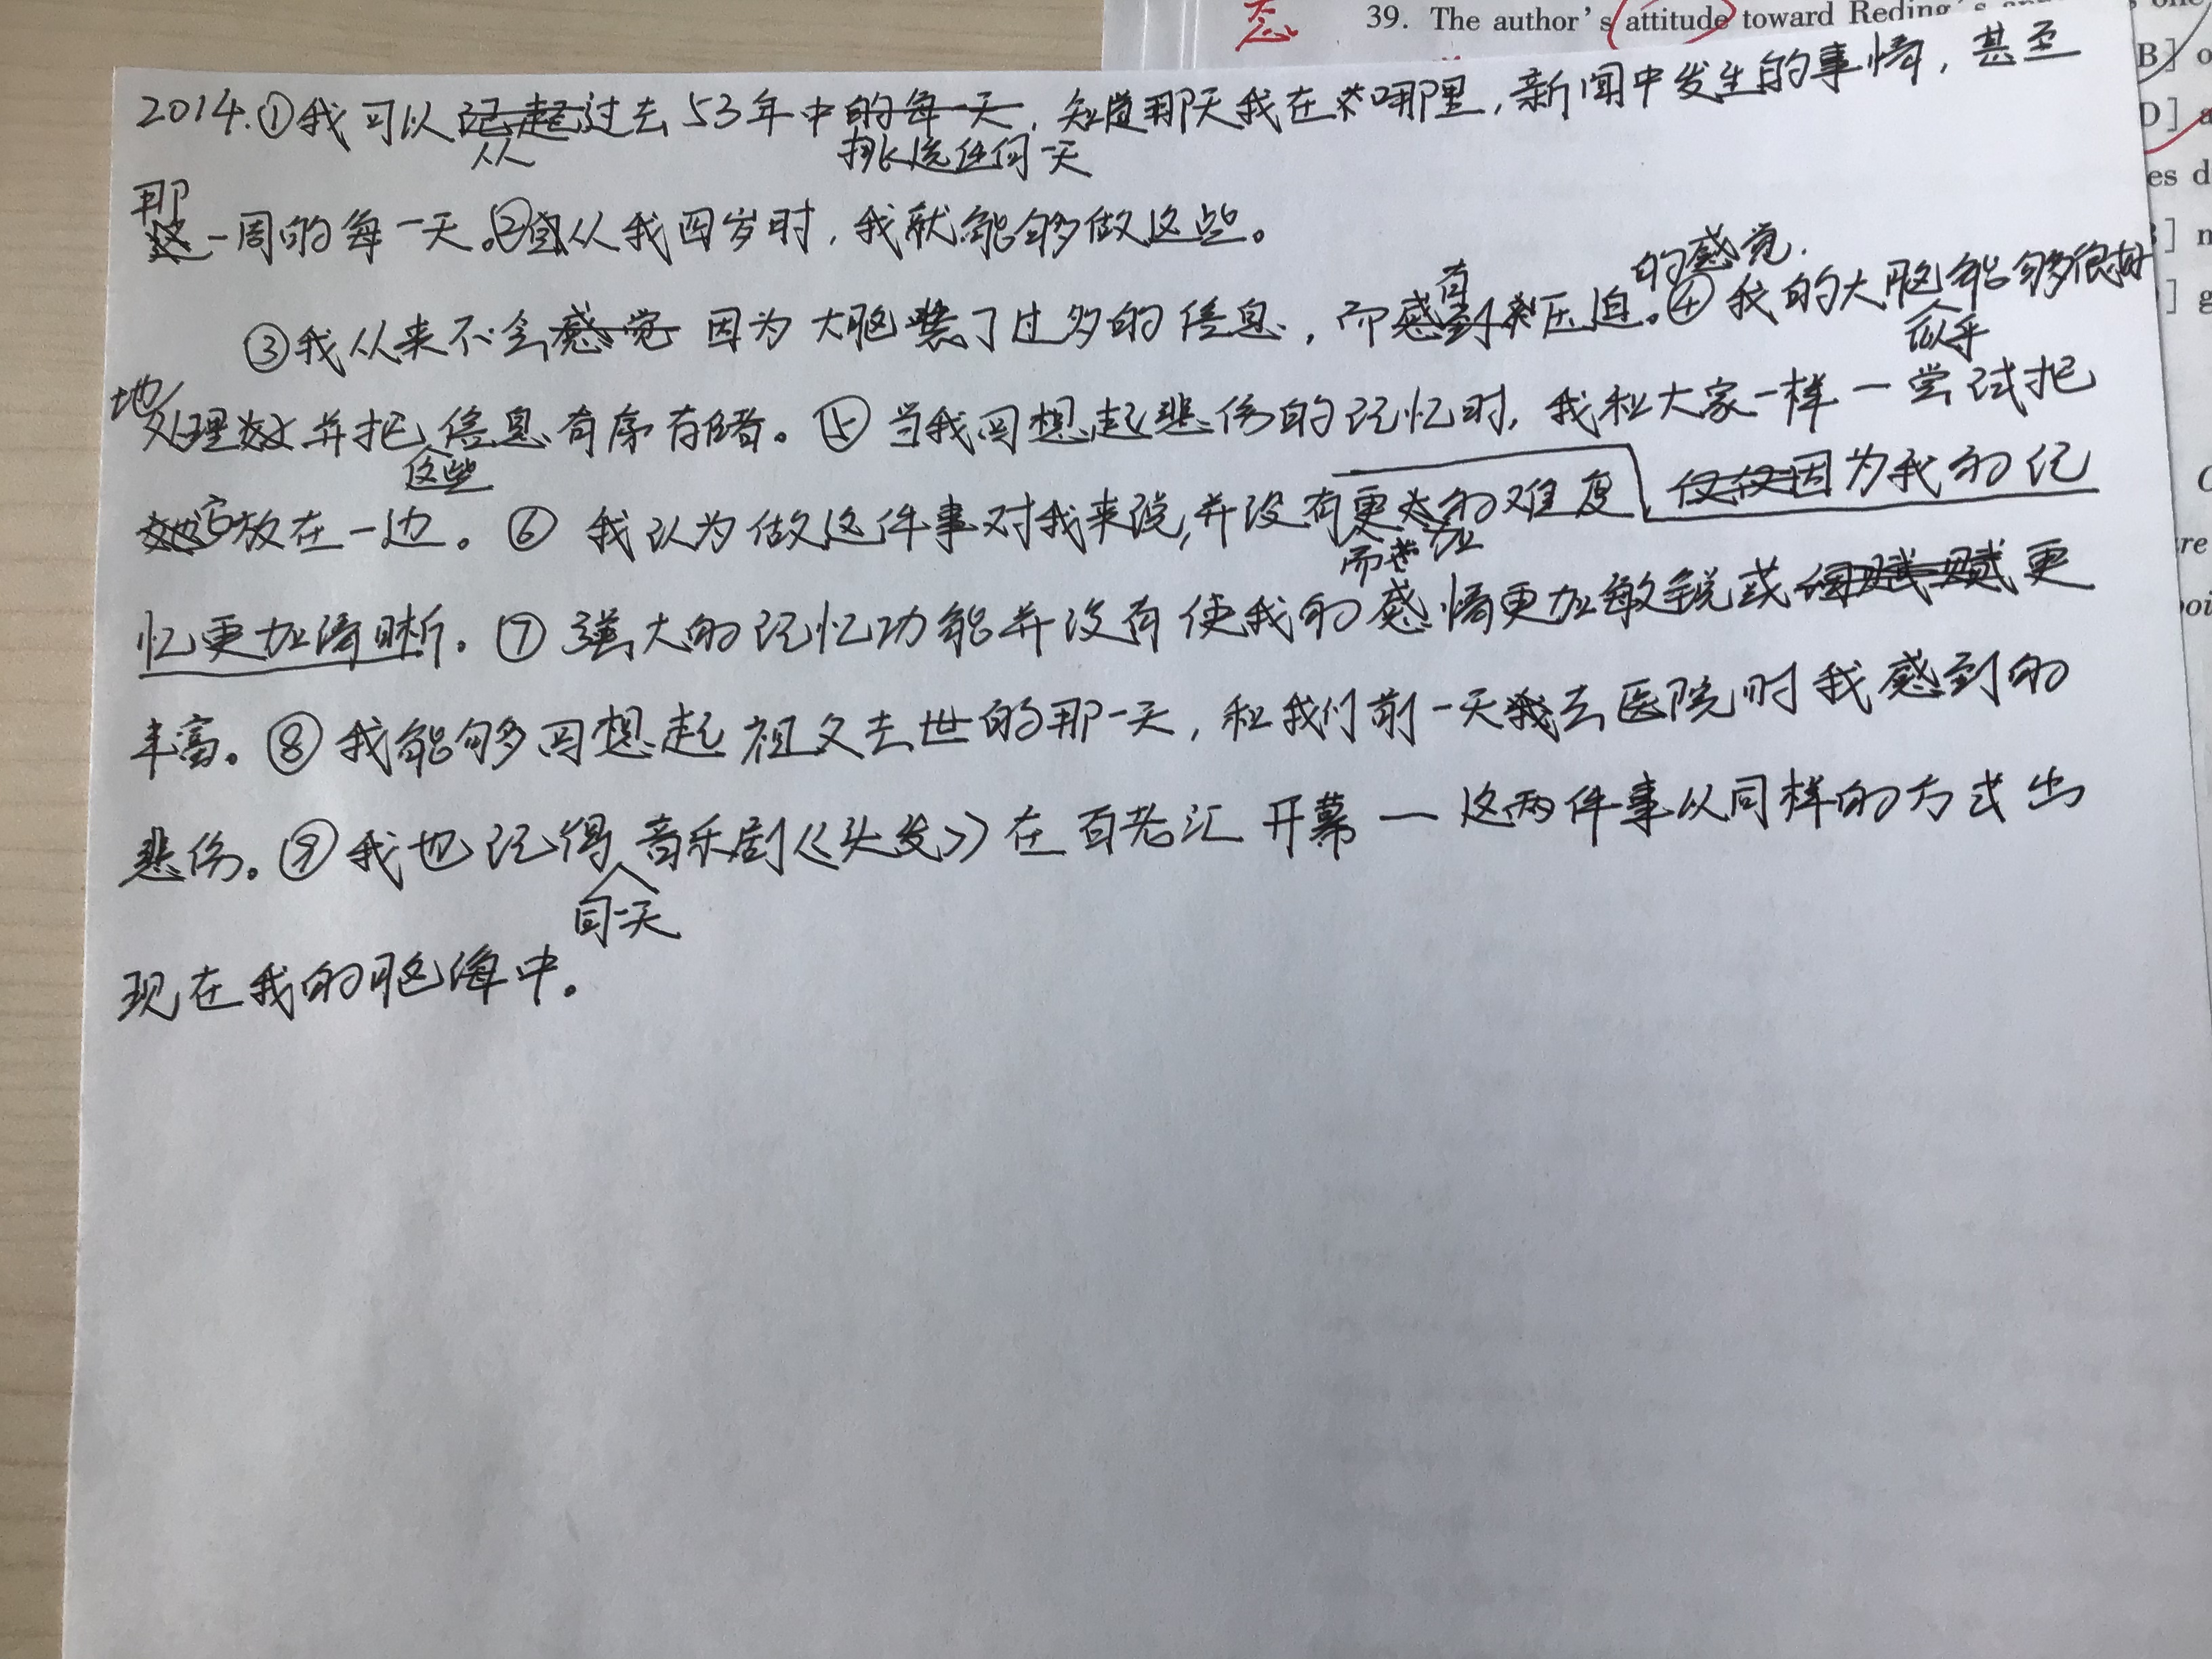 态
39. The author's attitude toward Reding's
B] o
D] a
es d
] n
] g
re
poi
2014.①我可以记起过去53年中的每一天,知道那天我在哪里,新闻中发生的事情,甚至
从 挑选任何一天
那
这一周的每一天。②自从我四岁时,我就能够做这些。
有 的感觉.
③我从来不会感觉因为大脑装了过多的信息,而感到压迫。④我的大脑能够很好
似乎
地处理并把信息有序存储。⑤当我回想起悲伤的记忆时,我和大家一样一尝试把
这些
它放在一边。⑥我认为做这件事对我来说,并没有更大的难度,仅仅因为我的记
而 加
忆更加清晰。⑦强大的记忆功能并没有使我的感情更加敏锐或更
丰富。⑧我能够回想起祖父去世的那一天,和我们前一天去医院时我感到的
悲伤。⑨我也记得音乐剧《头发》在百老汇开幕一这两件事从同样的方式出
同一天
现在我的脑海中。